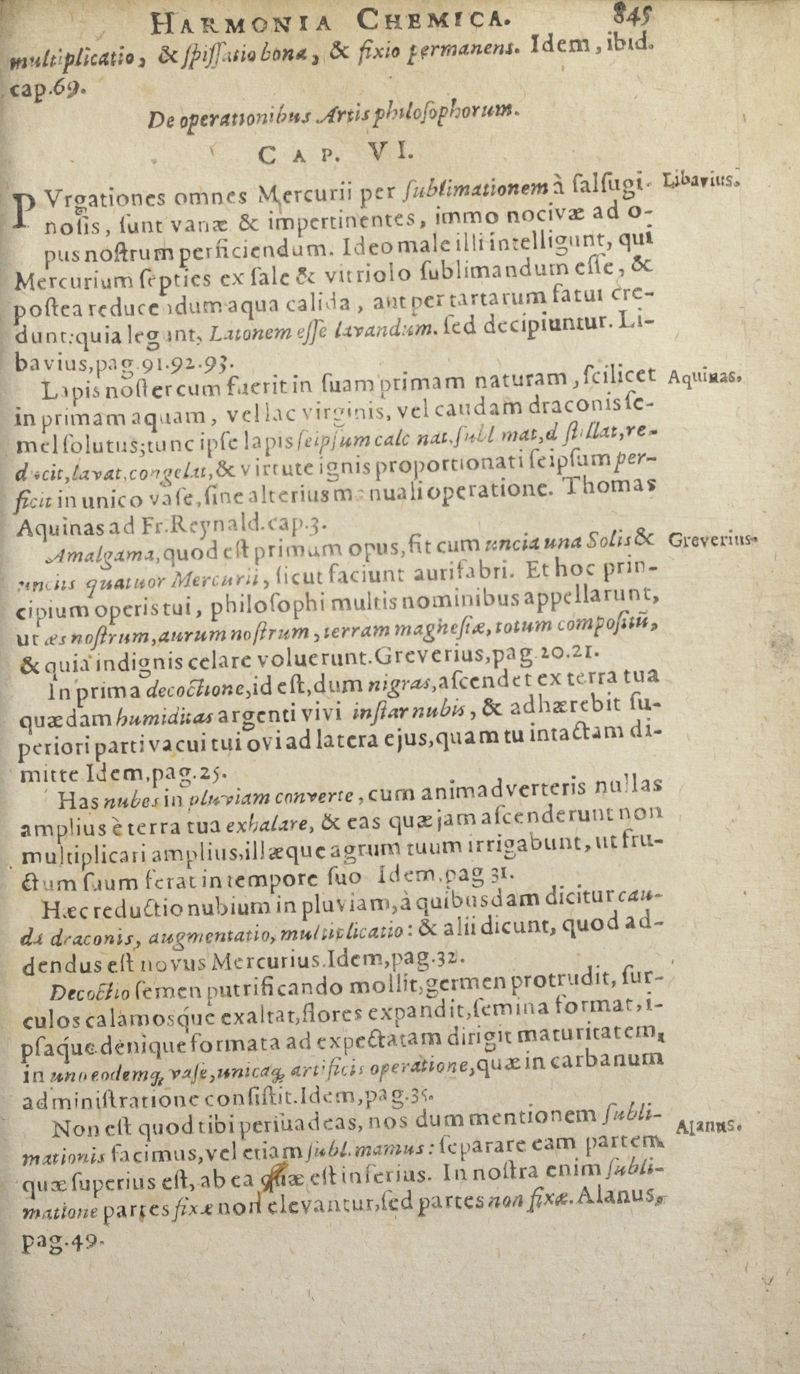 HARMONIA CHEMICA. 845
multiplicatio, & ſpiſſatio bona, & fixio permanens. Idem, ibid.
cap.69.
De operationibus Artis philoſophorum.
CAP. VI.
PVrgationes omnes Mercurii per ſublimationem à ſalſugi- Libavius.
noſis, ſunt vanæ & impertinentes, immo nocivæ ad o-
pus noſtrum perficiendum. Ideo male illi intelligunt, qui
Mercurium ſepties ex ſale & vitriolo ſublimandum eſſe, &
poſtea reducendum aqua calida, aut per tartarum fatui cre-
dunt: quia legunt, Latonem eſſe lavandum. ſed decipiuntur. Li-
bavius, pag. 91.92.93.
Lapis noſter cum fuerit in ſuam primam naturam, ſcilicet Aquinas.
in primam aquam, vel lac virginis, vel caudam draconis ſe-
mel ſolutus; tunc ipſe lapis ſeipſum calcinat, ſubl mat, d ſtillat, re-
ducit, lavat, congelat, & virtute ignis proportionati ſeipſum per-
ficit in unico vaſe, ſine alterius manuali operatione. Thomas
Aquinas ad Fr. Reynald. cap.3.
Amalgama, quod eſt primum opus, fit cum uncia una Solis & Greverius.
unciis quatuor Mercurii, ſicut faciunt aurifabri. Et hoc prin-
cipium operis tui, philoſophi multis nominibus appellarunt,
ut æs noſtrum, aurum noſtrum, terram magneſiæ, totum compoſitũ,
& quia indignis celare voluerunt. Greverius, pag 20.21.
In prima decoctione, id eſt, dum nigras, aſcendet ex terra tua
quædam humiditas argenti vivi inſtar nubis, & adhærebit ſu-
periori parti vacui tui ovi ad latera ejus, quam tu intactam di-
mitte Idem, pag. 25.
Has nubes in pluviam converte, cum animadverteris nullas
amplius è terra tua exhalare, & eas quæ jam aſcenderunt non
multiplicari amplius, illæque agrum tuum irrigabunt, ut fru-
ctum ſuum ferat in tempore ſuo Idem, pag 31.
Hæc reductio nubium in pluviam, à quibusdam dicitur cau-
da draconis, augmentatio, multiplicatio: & alii dicunt, quod ad-
dendus eſt novus Mercurius. Idem, pag. 32.
Decoctio ſemen putrificando mollit, germen protrudit, ſur-
culos calamosque exaltat, flores expandit, ſemina format, i-
pſaque denique formata ad expectatam dirigit maturitatem,
in uno eodemq; vaſe, unicaq; artificis operatione, quæ in carbanum
adminiſtratione conſiſtit. Idem, pag.35.
Non eſt quod tibi perſuadeas, nos dum mentionem ſubli- Alanus.
mationis facimus, vel etiam ſubl. mamus: ſeparare eam partem
quæ ſuperius eſt, ab ea quæ eſt inferius. In noſtra enim ſubli-
matione partes fixæ non elevantur, ſed partes non fixæ. Alanus,
pag. 49.